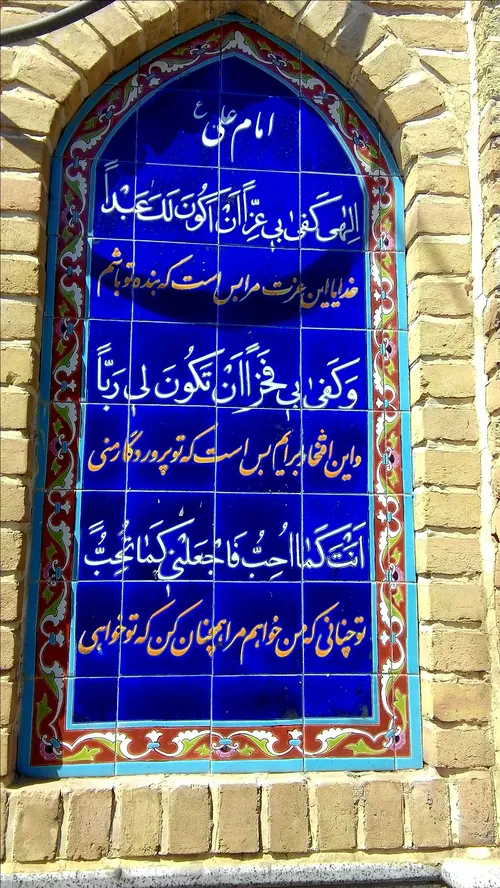 امام علی ع
اِلٰهی کَفیٰ بی عِزّاً اَنْ اَکُونَ لَکَ عَبْداً
خدایا این عزت مرا بس است که بنده تو باشم
وَ کَفیٰ بی فَخْراً اَنْ تَکُونَ لی رَبّاً
و این افتخار برایم بس است که تو پروردگار منی
اَنْتَ کَمٰا اُحِبُّ فَاجْعَلْنی کَمٰا تُحِبُّ
تو چنانی که من خواهم مرا همچنان کن که تو خواهی